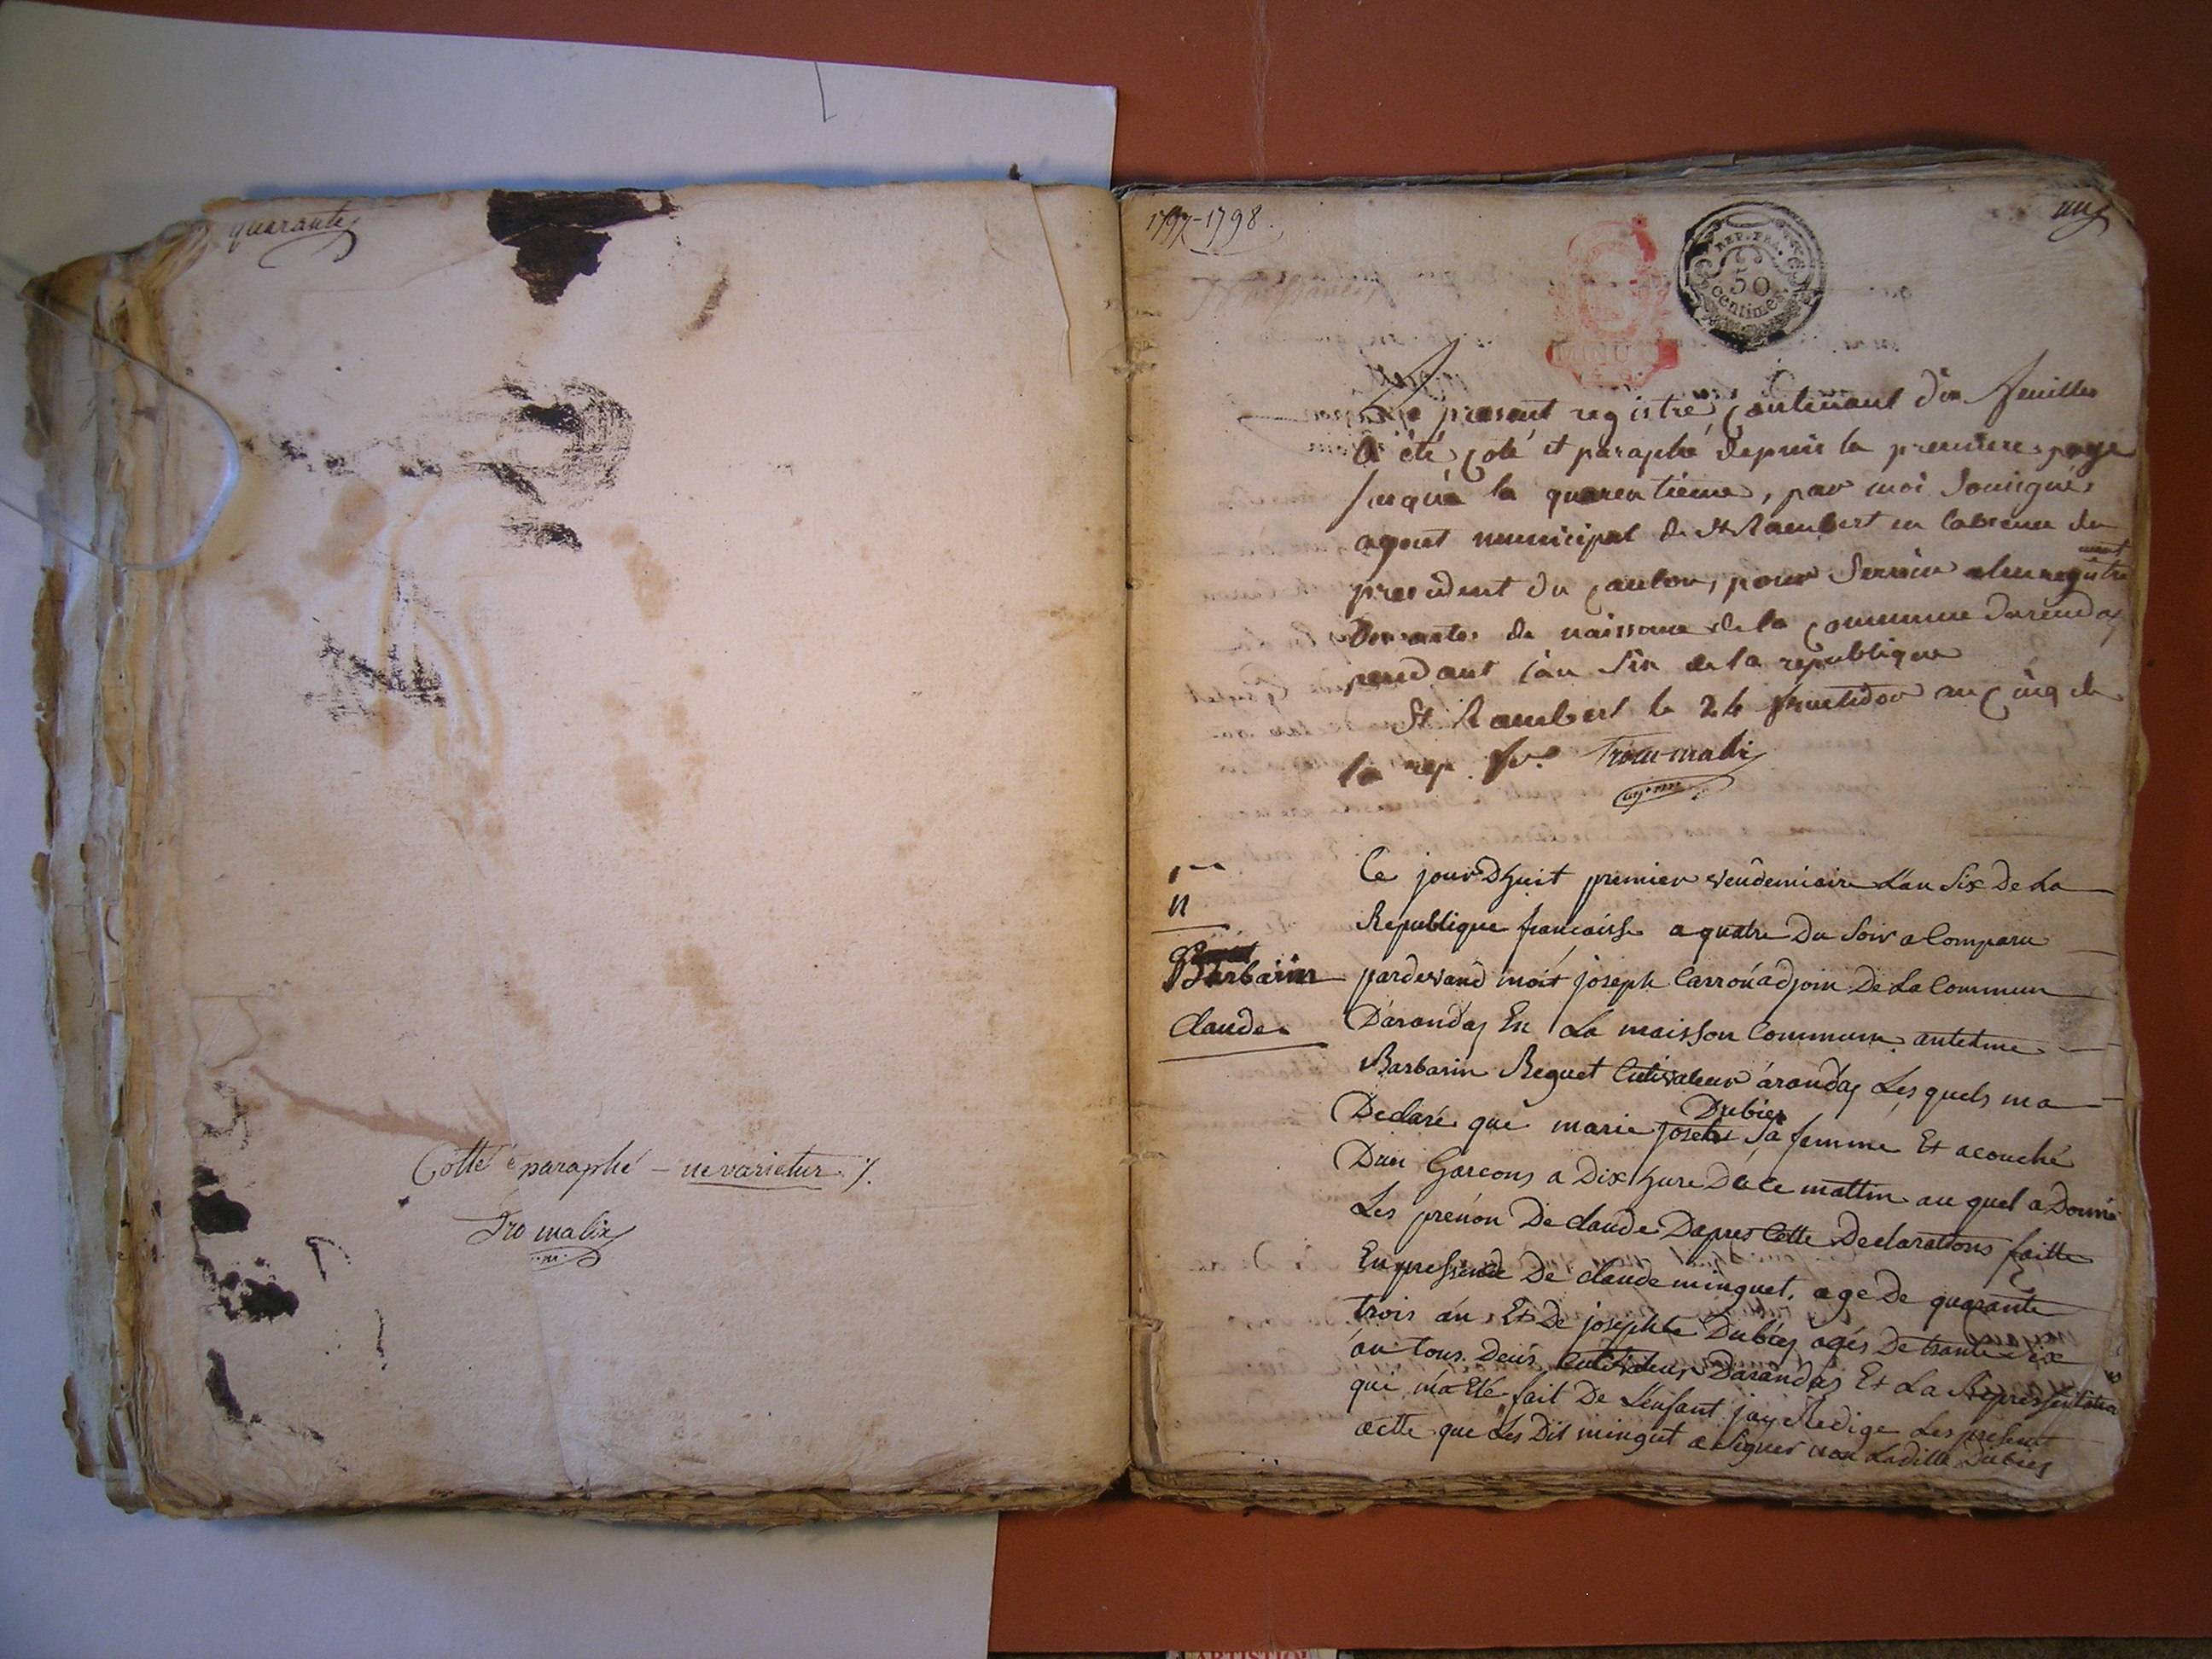 quarante
Cotté & paraphé – ne varietur %.
Tromalix
1797-1798.
un
REP. FRA.
50
centimes
MINUTE
Le present registre, contenant dix feuilles
a été coté et paraphé depuis la premiere page
jusqu'a la quarentieme, par moi soussigné,
agent municipal de St Rambert en labsence du
president du canton, pour servir a lenregistrement
des actes de naissance de la commune darendas
pendant l'an six de la republique
St Rambert le 24 fructidor an cinq de
la rep. fr.e Tromalix
agent
1er
n
Barbarin
Claude
Ce jourDhuit premier vendemiaire L'an Six De La
Republique francaisse a quatre Du Soir a Comparu
pardevand moit joseph Carron adjoin De La Commun
Darandas En La maisson Commune antelme
Barbarin Reguet Cultivateur à randas Lesquels ma
Declaré que marie josete Dubies Sa femme Et acouché
Dun Garcons a Dix hure De Ce mattin au quel a Donné
Les prénon De claude Dapres Cette Declarations faitte
En pressence De claude minguet, age De quarante
trois an, Et De josephte Dubies agés De trante six
an tous Deus Cultivateur Darandas Et La Representation
qui ma Eté fait De Lenfant jay Redige Les present
acttte que Les Dit mingut a Signer non Laditte Dubies
ARTISTIQU